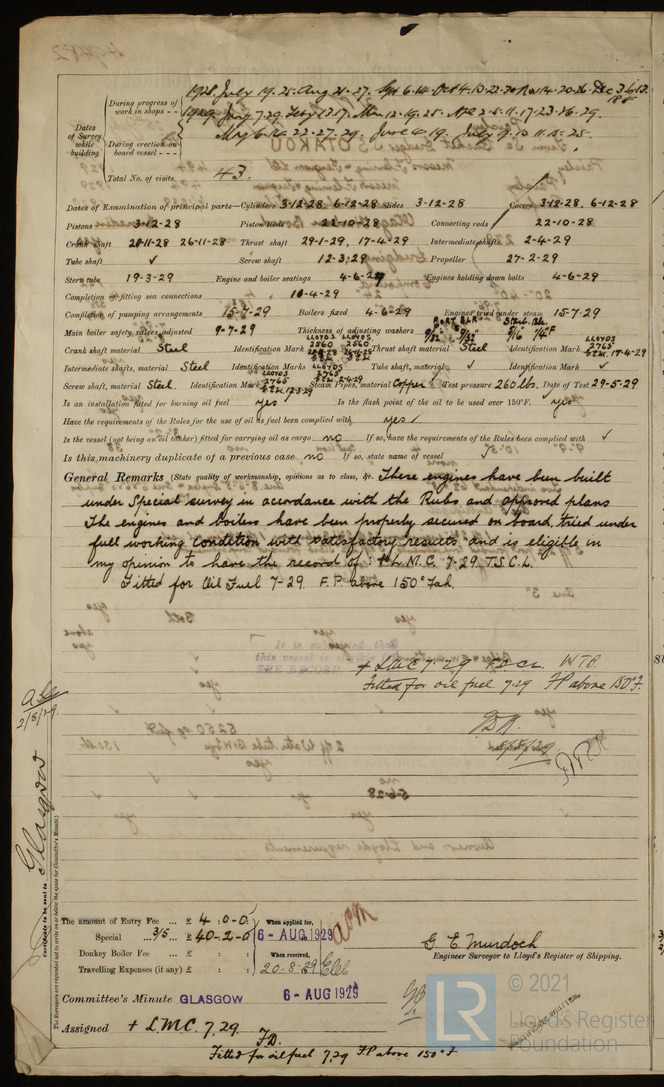 Dates of Survey while building
During progress of work in shops - -
1928. July 19. 25. Aug 21. 27. Spt 6. 14. Oct 4. 13. 22. 30 Nov 14. 20. 26. Dec 3. 6. 12.
1929. Jany 7. 29. Feby 13. 17. Mar 12. 19. 25. Apl 2. 5. 11. 17. 23. 26. 29.
During erection on board vessel - - -
May 6. 14. 22. 27. 29. June 4. 19. July 9. 10. 11. 15. 25.
Total No. of visits 43.
Dates of Examination of principal parts—Cylinders 3-12-28, 6-12-28 Slides 3-12-28 Covers 3-12-28, 6-12-28
Pistons 3-12-28 Piston Rods 22-10-28 Connecting rods 22-10-28
Crank shaft 20-11-28 26-11-28 Thrust shaft 29-1-29, 17-4-29 Intermediate shafts 2-4-29
Tube shaft ✓ Screw shaft 12-3-29 Propeller 27-2-29
Stern tube 19-3-29 Engine and boiler seatings 4-6-29 Engines holding down bolts 4-6-29
Completion of fitting sea connections 10-4-29
Completion of pumping arrangements 15-7-29 Boilers fixed 4-6-29 Engines tried under steam 15-7-29
Main boiler safety valves adjusted 9-7-29 Thickness of adjusting washers
Crank shaft material Steel Identification Mark LLOYDS 2560 LLOYDS 2560 Thrust shaft material Steel Identification Mark LLOYDS 2765 17-4-29
Intermediate shafts, material Steel Identification Marks LLOYDS 2765 2-4-29 Tube shaft, material ✓ Identification Mark ✓
Screw shaft, material Steel Identification Mark LLOYDS 2765 12-3-29 Steam Pipes, material Copper Test pressure 260 lbs. Date of Test 29-5-29
Is an installation fitted for burning oil fuel yes Is the flash point of the oil to be used over 150°F. yes
Have the requirements of the Rules for the use of oil as fuel been complied with yes
Is the vessel (not being an oil tanker) fitted for carrying oil as cargo no If so, have the requirements of the Rules been complied with ✓
Is this machinery duplicate of a previous case no If so, state name of vessel
General Remarks (State quality of workmanship, opinions as to class, &c. These engines have been built
under Special survey in accordance with the Rules and approved plans
The engines and boilers have been properly secured on board, tried under
full working condition with satisfactory results and is eligible in
my opinion to have the record of : + L.M.C. 7-29. T.S.C.L.
Fitted for Oil Fuel 7-29. F.P. above 150° Fah.
It is submitted that
this vessel is eligible for
THE RECORD
+ LMC 7.29 F.D. C.L. W.T.B.
Fitted for oil fuel 7.29 FP above 150°F.
2/8/29
Glasgow
Certificate to be sent to
The amount of Entry Fee ... £ 4 : 0 : 0
Special ... 3/5 £ 40 . 2 . 0
Donkey Boiler Fee ... £ : :
Travelling Expenses (if any) £ : :
When applied for,
6 - AUG 1929
When received,
20-8-29
G. E. Murdoch
Engineer Surveyor to Lloyd's Register of Shipping.
Committee's Minute GLASGOW 6 - AUG 1929
Assigned + L.M.C. 7.29
F.D.
Fitted for oil fuel 7.29 FP above 150°F
CERTIFICATE WRITTEN
© 2021
LR
Lloyd's Register
Foundation